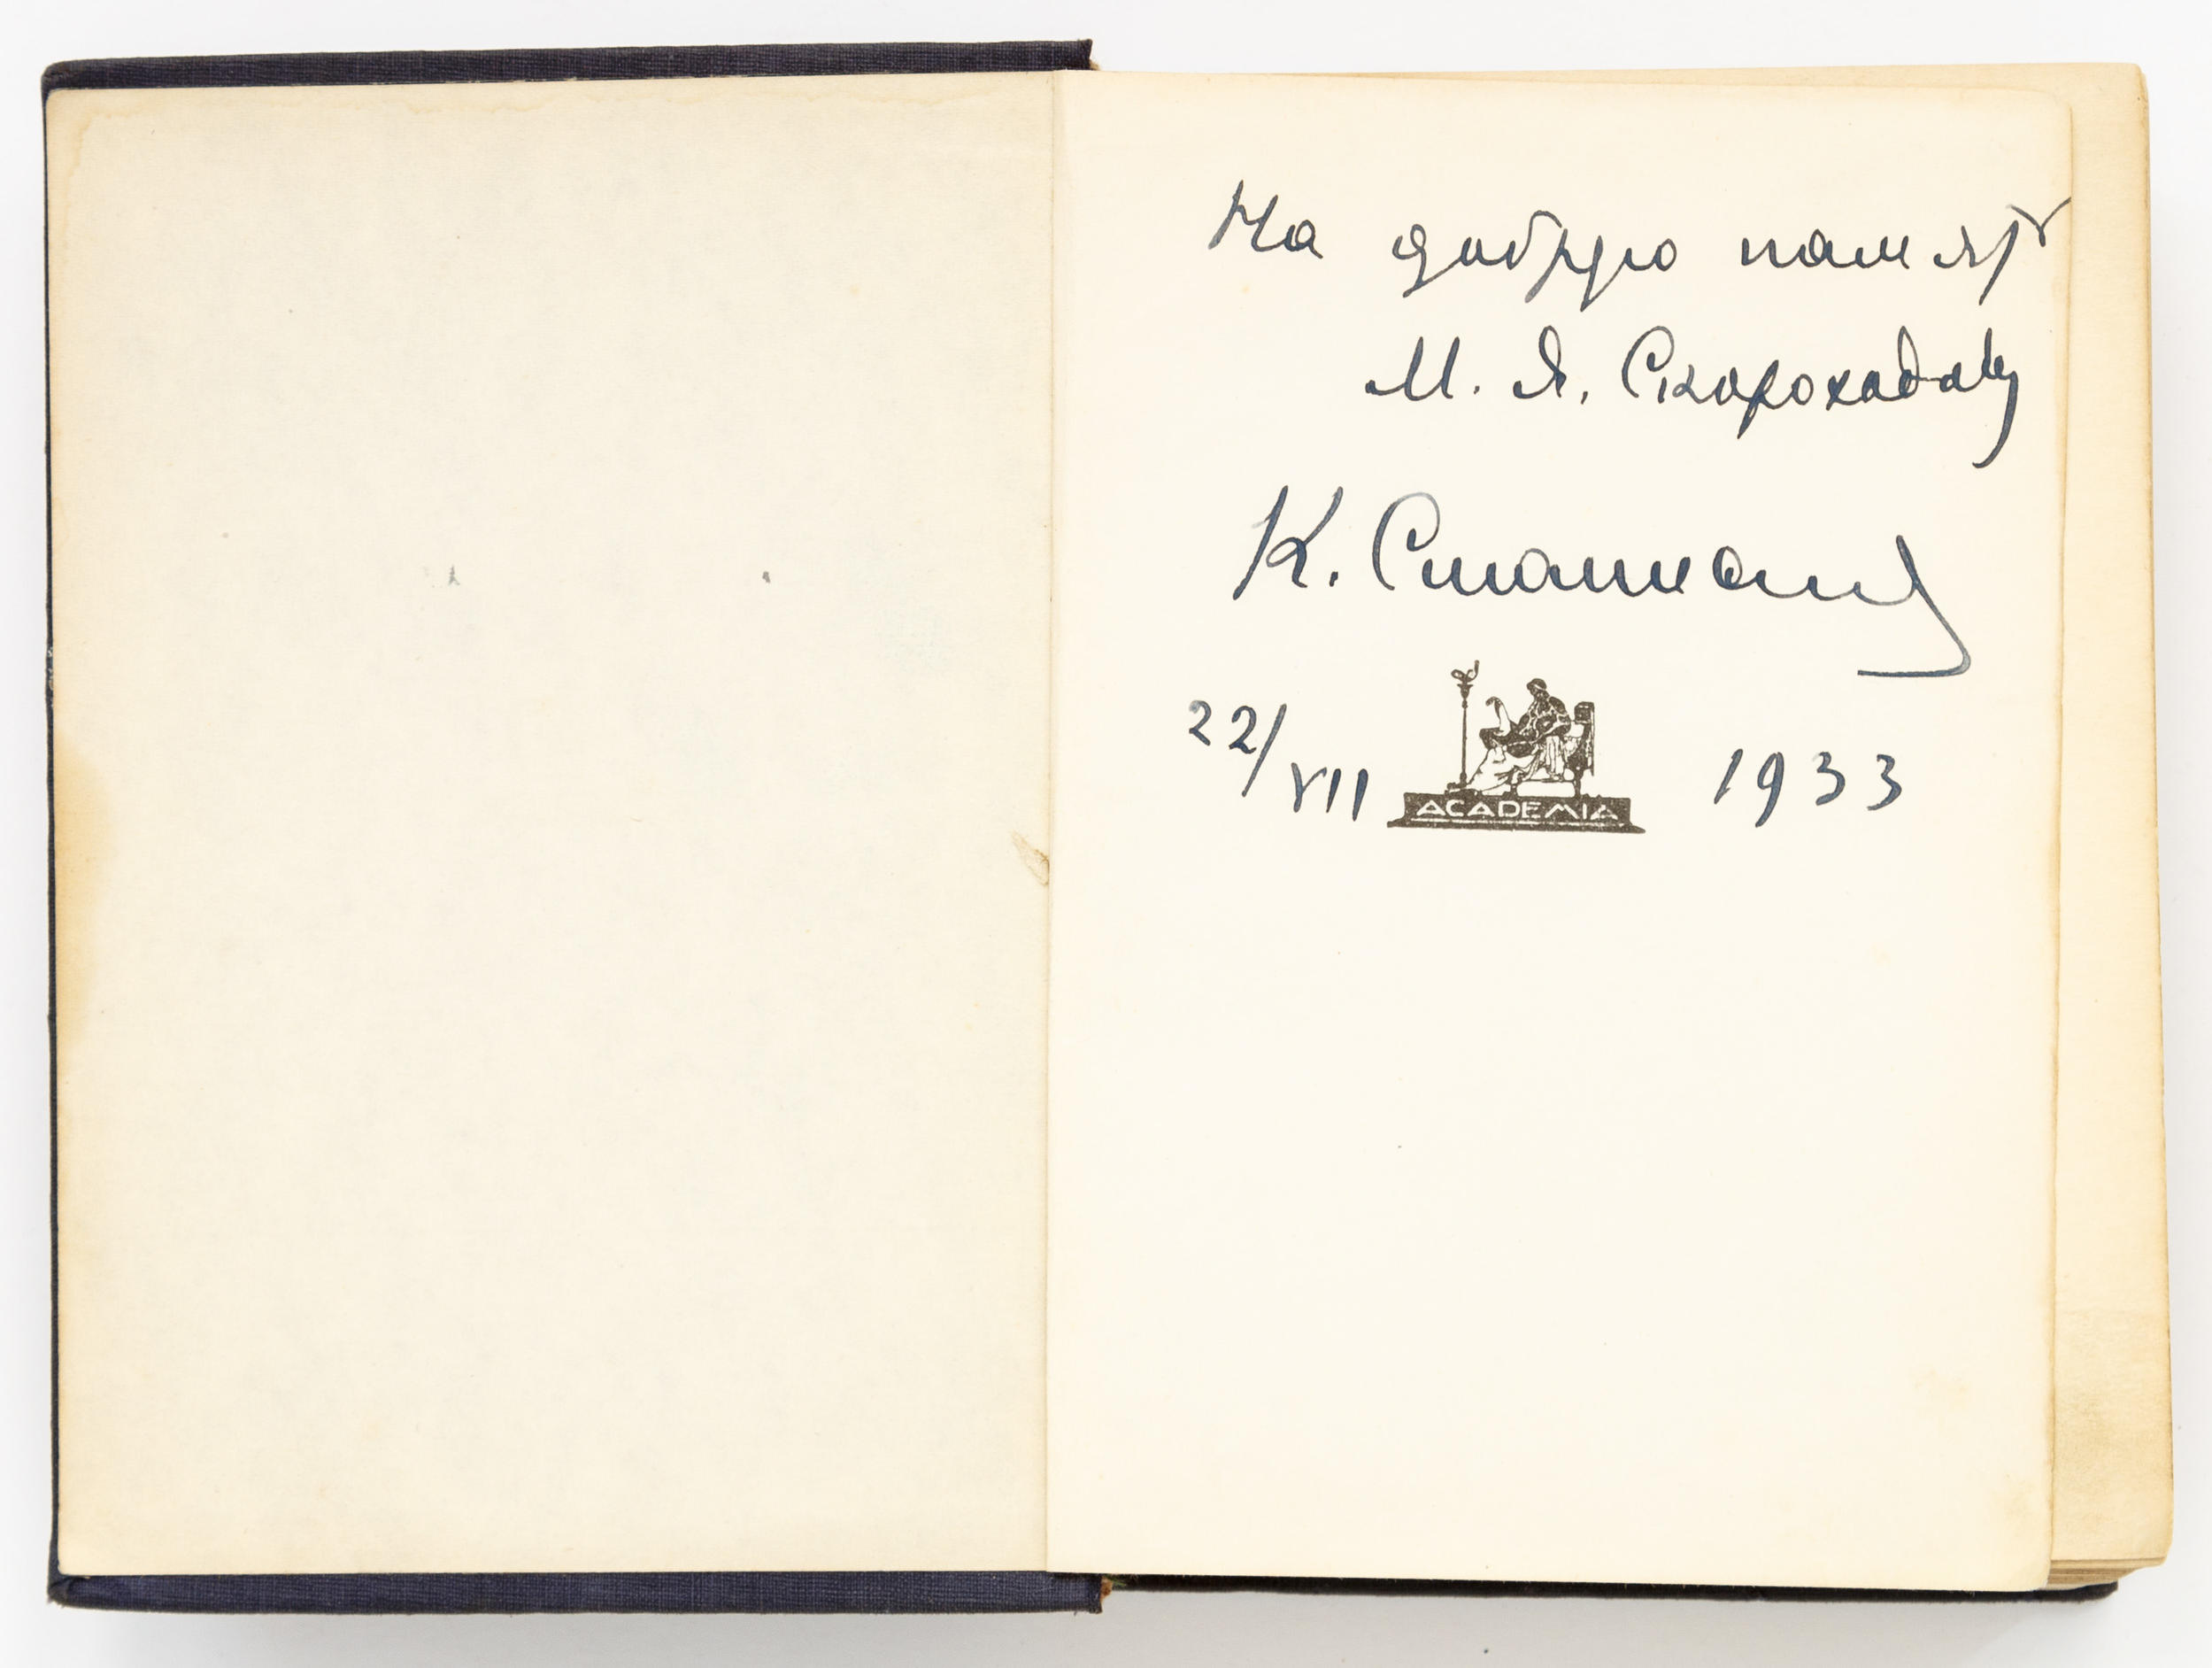 На добрую память
М. Я. Скороходову
К.
22/VII 1933
ACADEMIA